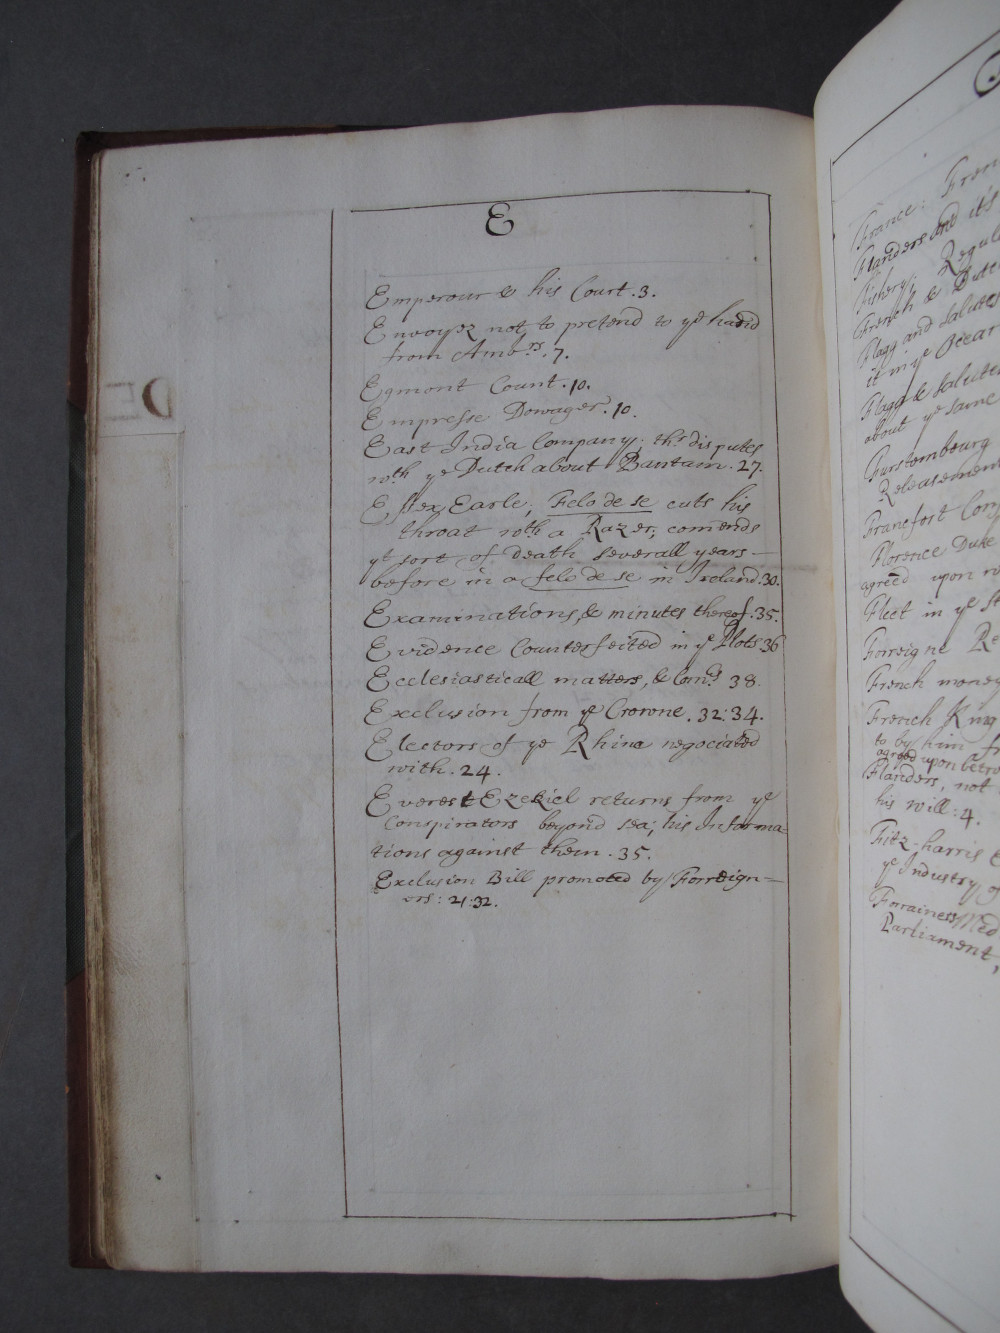 E
Emperour & his Court. 3.
Envoyez not to pretend to ye hand
from Ambrs. 7.
Egmont Count. 10.
Empresse Dowager. 10.
East India Company; ths disputes
wth ye Dutch about Bantam. 27.
Essex Earle; Felo de se cuts his
throat wth a Razer; comends
yt sort of death severall years—
before in a felo de se in Ireland. 30.
Examinations, & minutes thereof. 35.
Evidence Counterfeited in ye Plots. 36
Ecclesiasticall matters, & Coms. 38.
Exclusion from ye Crowne. 32: 34.
Electors of ye Rhine negociated
with. 24.
Everest Ezekiel returns from ye
Conspirators beyond sea; his Informa-
tions against them. 35.
Exclusion Bill promoted by Forreign=
ers: 21. 32.
DE
France:
Flanders and it's
Fishery;
French & Dutch
Flagg and Salutes
it in ye Ocean
Flagg & Salute
about ye same
Furstembourg
Releasement
Francfort
Florence Duke
agreed upon
Fleet in ye
Forreigne
French money
French King
to by him
agreed upon
Flanders, not
his will: 4.
Fitz-harris
ye Industry of
Forrainers
Parliament,